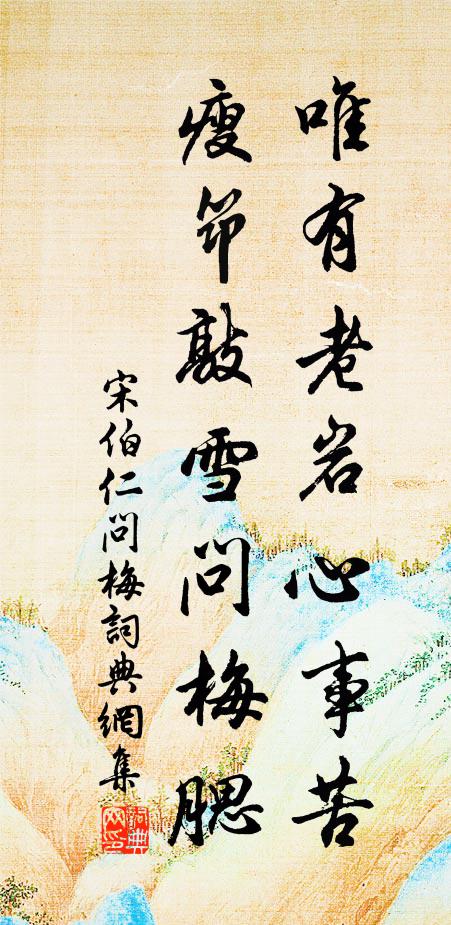 唯有老岩心事苦
瘦筇敲雪問梅腮
宋伯仁問梅詞典網集
詞典網印